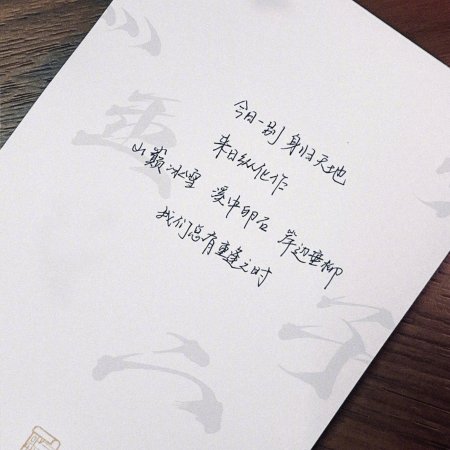 今日一别 身归天地
来日纵化作
山巅冰雪 溪中卵石 岸边垂柳
我们总有重逢之时